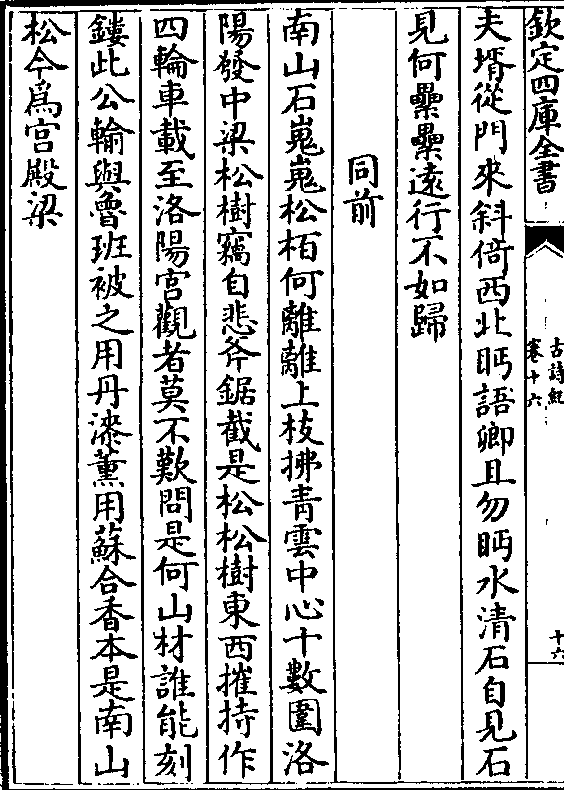 欽定四庫全書
古詩紀
卷十六
十六
夫壻從門來斜倚西北眄語卿且勿眄水清石自見石
見何纍纍遠行不如歸
同前
南山石嵬嵬松栢何離離上枝拂青雲中心十數圍洛
陽發中梁松樹竊自悲斧鋸截是松松樹東西摧持作
四輪車載至洛陽宮觀者莫不歎問是何山材誰能刻
鏤此公輸與魯班被之用丹漆薰用蘇合香本是南山
松今爲宮殿梁